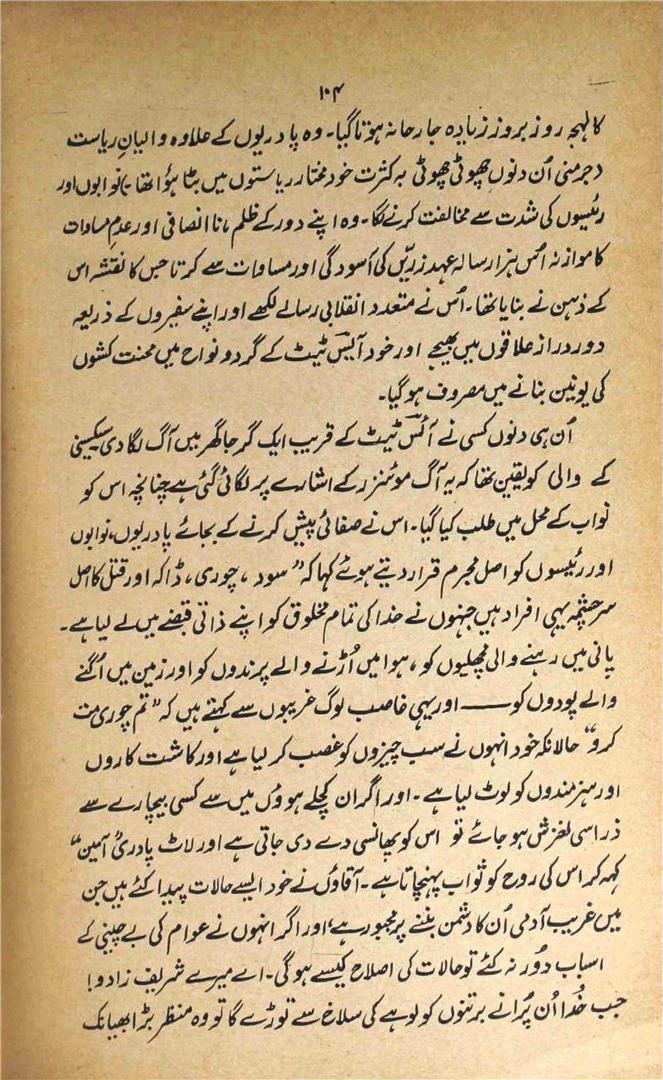 ۱۰۴
کا لہجہ روز بروز زیادہ جارحانہ ہوتا گیا۔ وہ پادریوں کے علاوہ والیانِ ریاست
(جرمنی اُن دنوں چھوٹی چھوٹی بہ کثرت خود مختار ریاستوں میں بٹا ہؤا تھا) نوابوں اور
رئیسوں کی شدت سے مخالفت کرنے لگا۔ وہ اپنے دور کے ظلم، ناانصافی اور عدمِ مساوات
کا موازنہ اُس ہزار سالہ عہدِ زرّیں کی آسودگی اور مساوات سے کرتا جس کا نقشہ اس
کے ذہن نے بنایا تھا۔ اُس نے متعدد انقلابی رسالے لکھے اور اپنے سفیروں کے ذریعہ
دور دراز علاقوں میں بھیجے اور خود آیس ٹیٹ کے گردو نواح میں محنت کشوں
کی یونین بنانے میں مصروف ہو گیا۔
اُن ہی دنوں کسی نے آئس ٹیٹ کے قریب ایک گرجا گھر میں آگ لگا دی سیکسینی
کے والی کو یقین تھا کہ یہ آگ موئنزر کے اشارے پر لگائی گئی ہے چنانچہ اس کو
نواب کے محل میں طلب کیا گیا۔ اس نے صفائی پیش کرنے کے بجائے پادریوں، نوابوں
اور رئیسوں کو اصل مجرم قرار دیتے ہوئے کہا کہ ”سود، چوری، ڈاکہ اور قتل کا اصل
سرچشمہ یہی افراد ہیں جنہوں نے خدا کی تمام مخلوق کو اپنے ذاتی قبضے میں لے لیا ہے۔
پانی میں رہنے والی مچھلیوں کو، ہوا میں اُڑنے والے پرندوں کو اور زمین میں اُگنے
والے پودوں کو —— اور یہی غاصب لوگ غریبوں سے کہتے ہیں کہ ”تم چوری مت
کرو“ حالانکہ خود انہوں نے سب چیزوں کو غصب کر لیا ہے اور کاشت کاروں
اور ہنر مندوں کو لوٹ لیا ہے۔ اور اگر ان کچلے ہوؤں میں سے کسی بیچارے سے
ذرا سی لغزش ہو جائے تو اس کو پھانسی دے دی جاتی ہے اور لاٹ پادری ”آمین“
کہہ کر اس کی روح کو ثواب پہنچاتا ہے۔ آقاؤں نے خود ایسے حالات پیدا کئے ہیں جن
میں غریب آدمی اُن کا دشمن بننے پر مجبور ہے، اور اگر انہوں نے عوام کی بے چینی کے
اسباب دُور نہ کئے تو حالات کی اصلاح کیسے ہوگی۔ اے میرے شریف زادو!
جب خُدا اُن پُرانے برتنوں کو لوہے کی سلاخ سے توڑے گا تو وہ منظر بڑا بھیانک